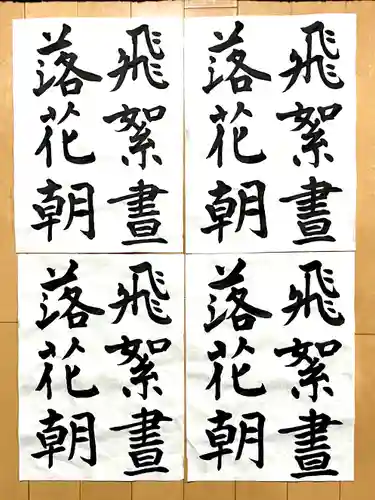 飛絮晝
落花朝
飛絮晝
落花朝
飛絮晝
落花朝
飛絮晝
落花朝